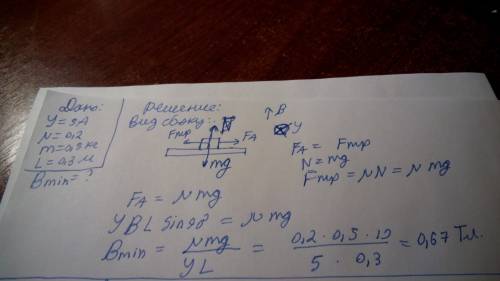 Дано:
У = 5А
μ = 0,2
m = 0,5 кг
L = 0,3 м
Bmin = ?
Решение:
Вид сбоку:
N
Fтр
FA
mg
↑B
У
FA = Fтр
N = mg
Fтр = μN = μmg
FA = μmg
УBL sin90° = μmg
Bmin = μmg / УL = 0,2 · 0,5 · 10 / 5 · 0,3 = 0,67 Тл.